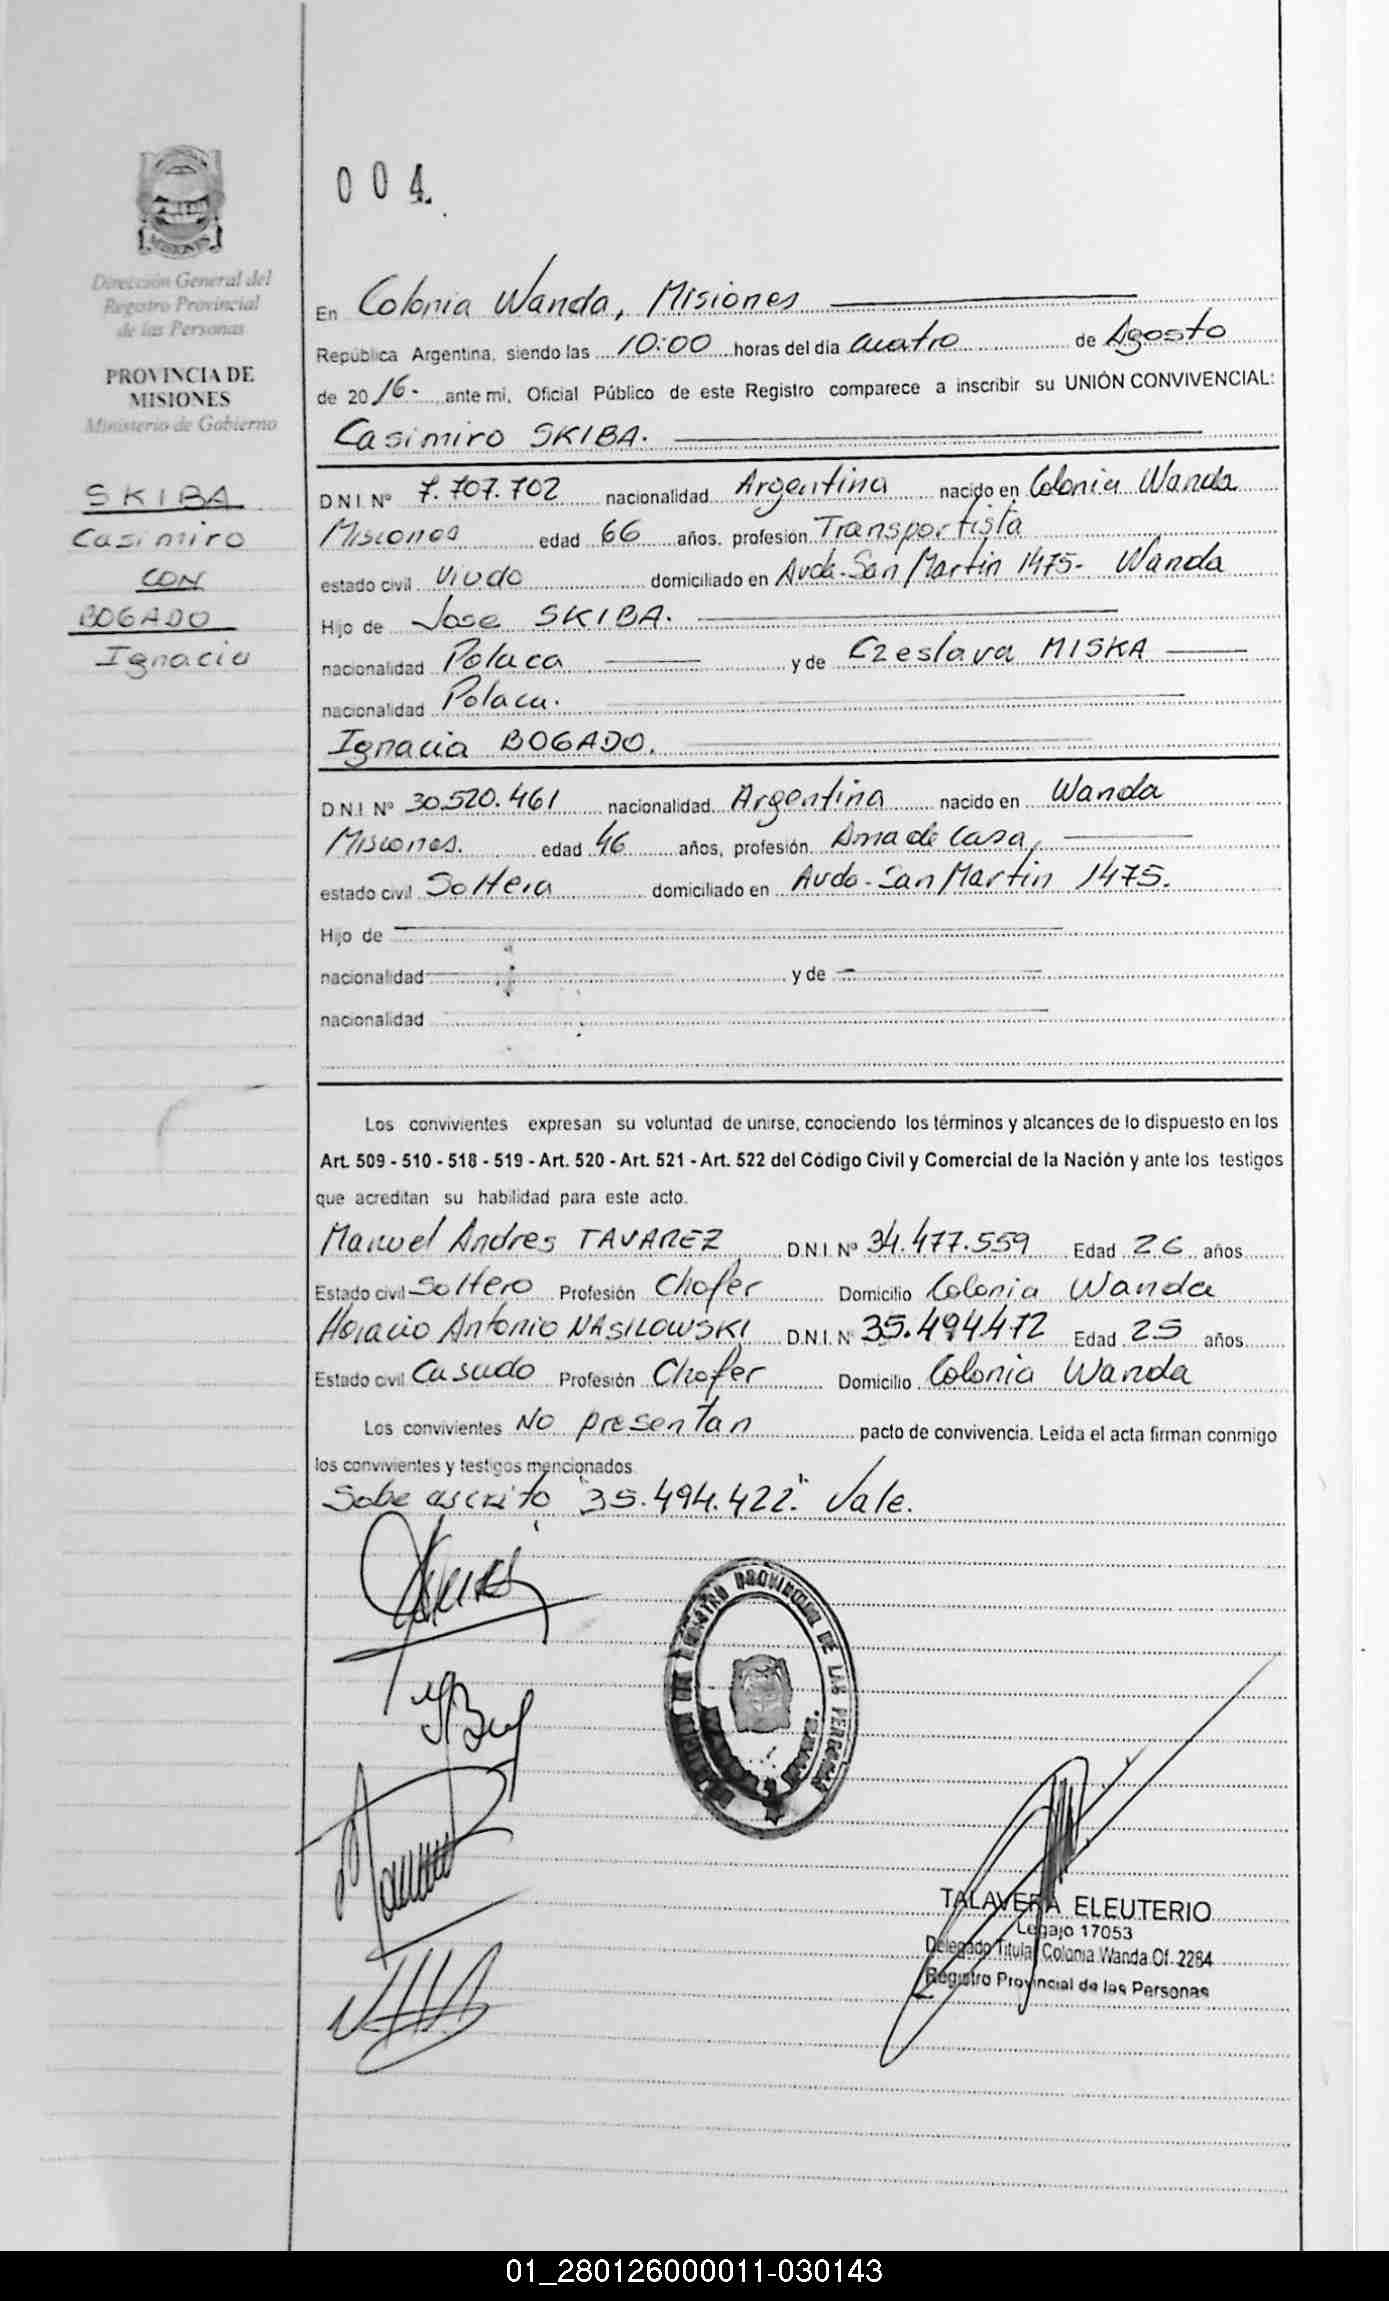 004.
MISIONES
Dirección General del
Registro Provincial
de las Personas
PROVINCIA DE
MISIONES
Ministerio de Gobierno
SKIBA
Casimiro
CON
BOGADO
Ignacia
En Colonia Wanda, Misiones
República Argentina, siendo las 10:00 horas del día cuatro de Agosto
de 2016- ante mi, Oficial Público de este Registro comparece a inscribir su UNIÓN CONVIVENCIAL:
Casimiro SKIBA.
D.N.I. Nº 7.707.702 nacionalidad Argentina nacido en Colonia Wanda
Misiones edad 66 años, profesión Transportista
estado civil Viudo domiciliado en Avda. San Martin 1475- Wanda
Hijo de Jose SKIBA.
nacionalidad Polaca y de Czeslava MISKA
nacionalidad Polaca.
Ignacia BOGADO.
D.N.I. Nº 30.520.461 nacionalidad Argentina nacido en Wanda
Misiones. edad 46 años, profesión Ama de Casa,
estado civil Soltera domiciliado en Avda. San Martin 1475.
Hijo de
nacionalidad y de
nacionalidad
Los convivientes expresan su voluntad de unirse, conociendo los términos y alcances de lo dispuesto en los
Art. 509 - 510 - 518 - 519 - Art. 520 - Art. 521 - Art. 522 del Código Civil y Comercial de la Nación y ante los testigos
que acreditan su habilidad para este acto.
Manuel Andres TAVAREZ D.N.I. Nº 34.477.559 Edad 26 años
Estado civil Soltero Profesión Chofer Domicilio Colonia Wanda
Horacio Antonio NASILOWSKI D.N.I. N 35.494.472 Edad 25 años
Estado civil Casado Profesión Chofer Domicilio Colonia Wanda
Los convivientes No presentan pacto de convivencia. Leída el acta firman conmigo
los convivientes y testigos mencionados.
Sobe escrito "35.494.422." Vale.
REGISTRO PROVINCIAL DE LAS PERSONAS
TALAVERA ELEUTERIO
Legajo 17053
Delegado Titular Colonia Wanda Of. 2284
Registro Provincial de las Personas
01_280126000011-030143